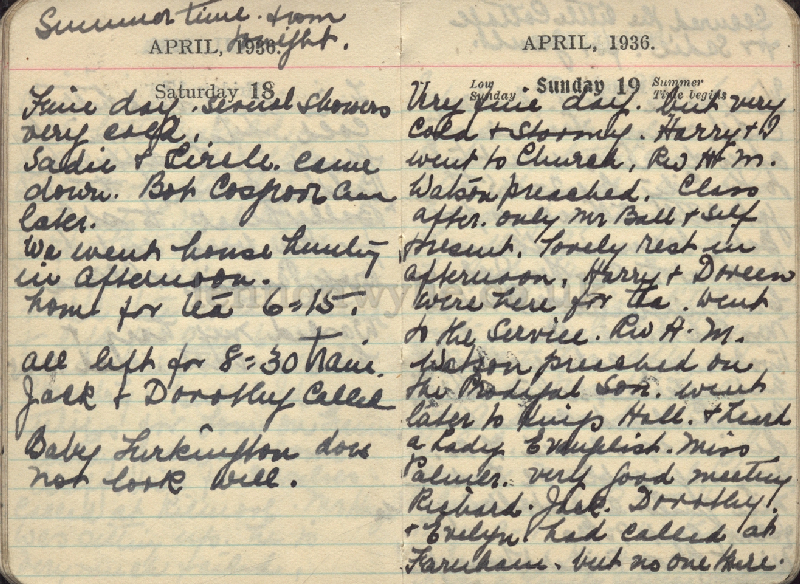 Summer time from
tonight.
APRIL, 1936.
Saturday 18
Fine day. several showers
very cold.
Sadie & Circle. came
down. Bob Cam
later.
We went house hunting
in afternoon.
home for tea 6=15.
all left for 8=30 train.
Jack & Dorothy Called
Baby Turkington does
not look well.
APRIL, 1936.
Low Sunday Sunday 19 Summer Time begins
Very fine day. but very
Cold & Stormy. Harry & I
went to Church, Rev H. M.
Watson preached. Class
after. only Mr Ball & self
present. lovely rest in
afternoon. Harry & Doreen
were here for tea. went
to the Service. Rev H. M.
Watson preached on
the Prodigal Son. went
later to Kings Hall. & heard
a Lady Evanglist. Miss
Palmer. very good meeting
Richard. Jack. Dorothy.
& Evelyn. had called at
Farnham. but no one there.